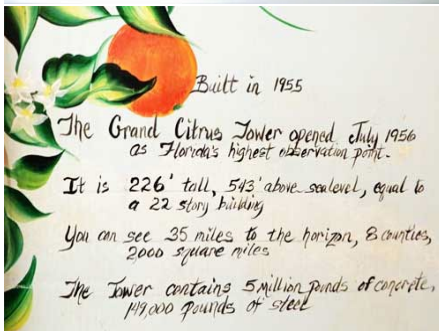 Built in 1955
The Grand Citrus Tower opened July 1956
as Florida's highest observation point.
It is 226' tall, 543' above sealevel, equal to
a 22 story building
You can see 35 miles to the horizon, 8 counties,
2,000 square miles
The Tower contains 5 million pounds of concrete,
149,000 pounds of steel